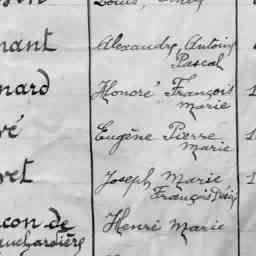 Louis,
nant Alexandre, Antoine
Pascal
nard Honoré François
Marie
vé Eugène Pierre
Marie
vet Joseph Marie
François
con de Henri Marie